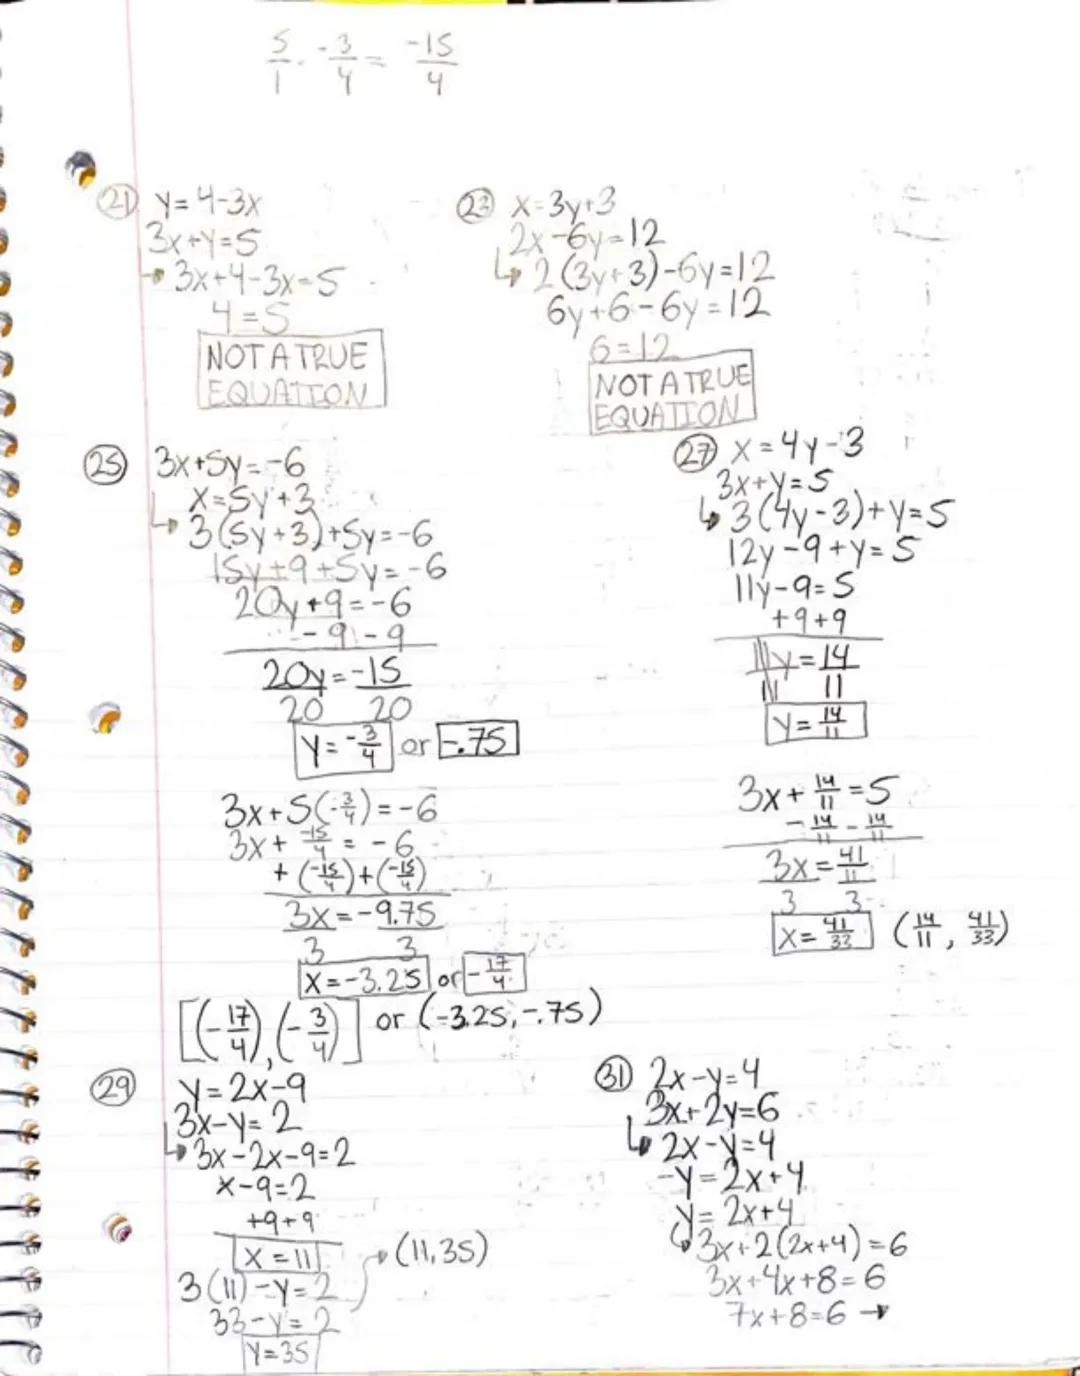 5/1 · -3/4 = -15/4
21 y=4-3x
3x+y=5
→ 3x+4-3x=5
4=5
NOT A TRUE
EQUATION
23 x=3y+3
2x-6y=12
↳ 2(3y+3)-6y=12
6y+6-6y=12
6=12
NOT A TRUE
EQUATION
25 3x+5y=-6
x=5y+3
↳ 3(5y+3)+5y=-6
15y+9+5y=-6
20y+9=-6
-9 -9
20y=-15
20 20
y=-3/4 or -.75
3x+5(-3/4)=-6
3x+ -15/4 = -6
+(-15/4)+(-15/4)
3x=-9.75
3 3
x=-3.25 or -17/4
[(-17/4),(-3/4)] or (-3.25,-.75)
27 x=4y-3
3x+y=5
↳ 3(4y-3)+y=5
12y-9+y=5
11y-9=5
+9+9
11y=14
11 11
y=14/11
3x+14/11=5
-14/11 -14/11
3x=41/11
3 3
x=41/33 (14/11, 41/33)
29 y=2x-9
3x-y=2
↳ 3x-2x-9=2
x-9=2
+9+9
x=11 → (11,35)
3(11)-y=2
33-y=2
y=35
31 2x-y=4
3x+2y=6
↳ 2x-y=4
-y=2x+4
y=2x+4
↳ 3x+2(2x+4)=6
3x+4x+8=6
7x+8=6 →